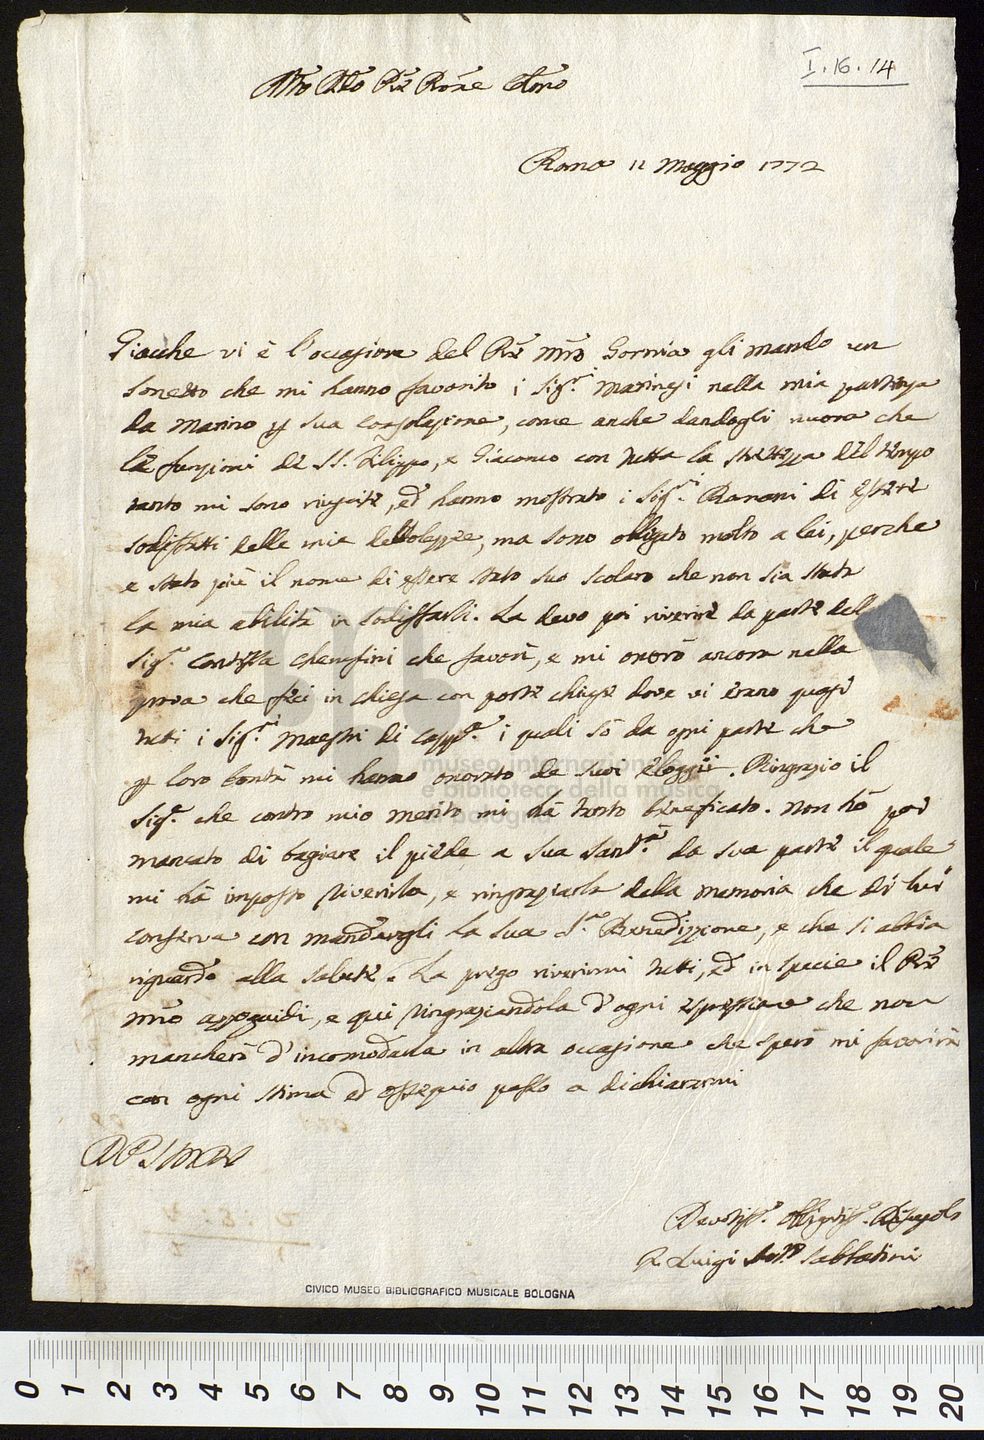 I.16.14
Roma 11 Maggio 1772
Giacche vi è l'occasione del Rẽ Mrõ Gornia gli mando un
sonetto che mi hanno favorito i Sig.ri Marinesi nella mia partenza
da Marino p sua consolazione, come anche dandogli nuova che
le funzioni di SS. Filippo, e Giacomo con tutta la strettezza del tempo
tanto mi sono riuscite, ed hanno mostrato i Sig.ri Romani di essere
sodisfatti delle mie debolezze, ma sono obligato molto a lei, perche
e stato più il nome di essere stato suo scolaro che non sia stata
la mia abilità in sodisfarli. La devo poi riverire da parte dell
Sig. Contessa Cherofini che favorì, e mi onorò ancora nella
prova che feci in chiesa con porte chiuse dove vi erano quasi
tutti i Sig.ri Maestri di Capp.a i quali sò da ogni parte che
p loro bontà mi hanno onorato de suoi eloggii. Ringrazio il
Sig.e che contro mio merito mi hà tanto beneficato. Non hò poi
mancato di bagiare il piede a sua Sant.tà da sua parte il quale
mi hà imposto riverirla, e ringraziarla della memoria che di lui
conserva con mandargli la sua S.a Benedizzione, e che si abbia
riguardo alla salute. La prego riverirmi tutti, ed in specie il Rẽ
Mrõ , e qui ringraziandola d'ogni espressione che non
mancherò d'incomodarla in altra occasione che spero mi favorirà
con ogni stima ed ossequio passo a dichiararmi
Devotiss.o Obligatiss.o Discepolo
F. Luigi Ant.o Sabbatini
CIVICO MUSEO BIBLIOGRAFICO MUSICALE BOLOGNA
museo internazionale
e biblioteca della musica
bologna
0 1 2 3 4 5 6 7 8 9 10 11 12 13 14 15 16 17 18 19 20